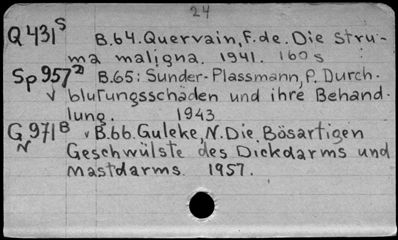 24
Q 431 S B.64. Quervain, F. de. Die Stru-
ma maligna. 1941. 160 s
Sp 957 2) B.65: Sunder-Plassmann, P. Durch-
v blutungsschäden und ihre Behand-
lung. 1943
G 971 B v B.66. Guleke, N. Die Bösartigen
N Geschwülste des Dickdarms und
Mastdarms. 1957.